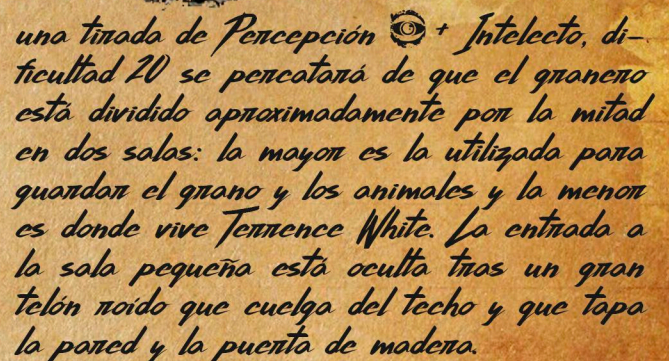 una tirada de Percepción + Intelecto, di-
ficultad 20 se percatará de que el granero
está dividido aproximadamente por la mitad
en dos salas: la mayor es la utilizada para
guardar el grano y los animales y la menor
es donde vive Terrence White. La entrada a
la sala pequeña está oculta tras un gran
telón roído que cuelga del techo y que tapa
la pared y la puerta de madera.